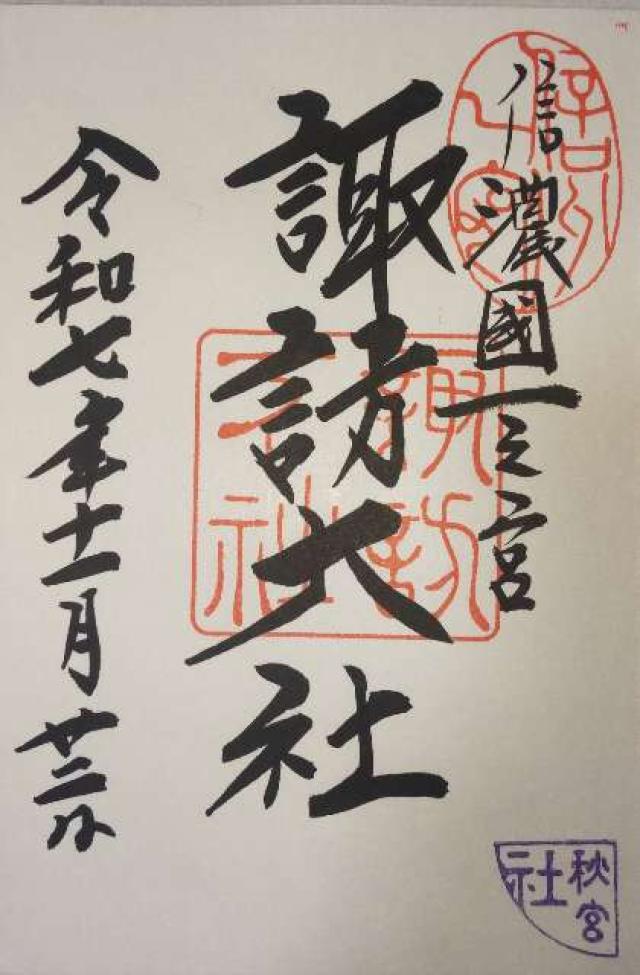 信濃國一之宮
諏訪大社
令和七年十一月廿二日
諏訪
大社
秋宮
社